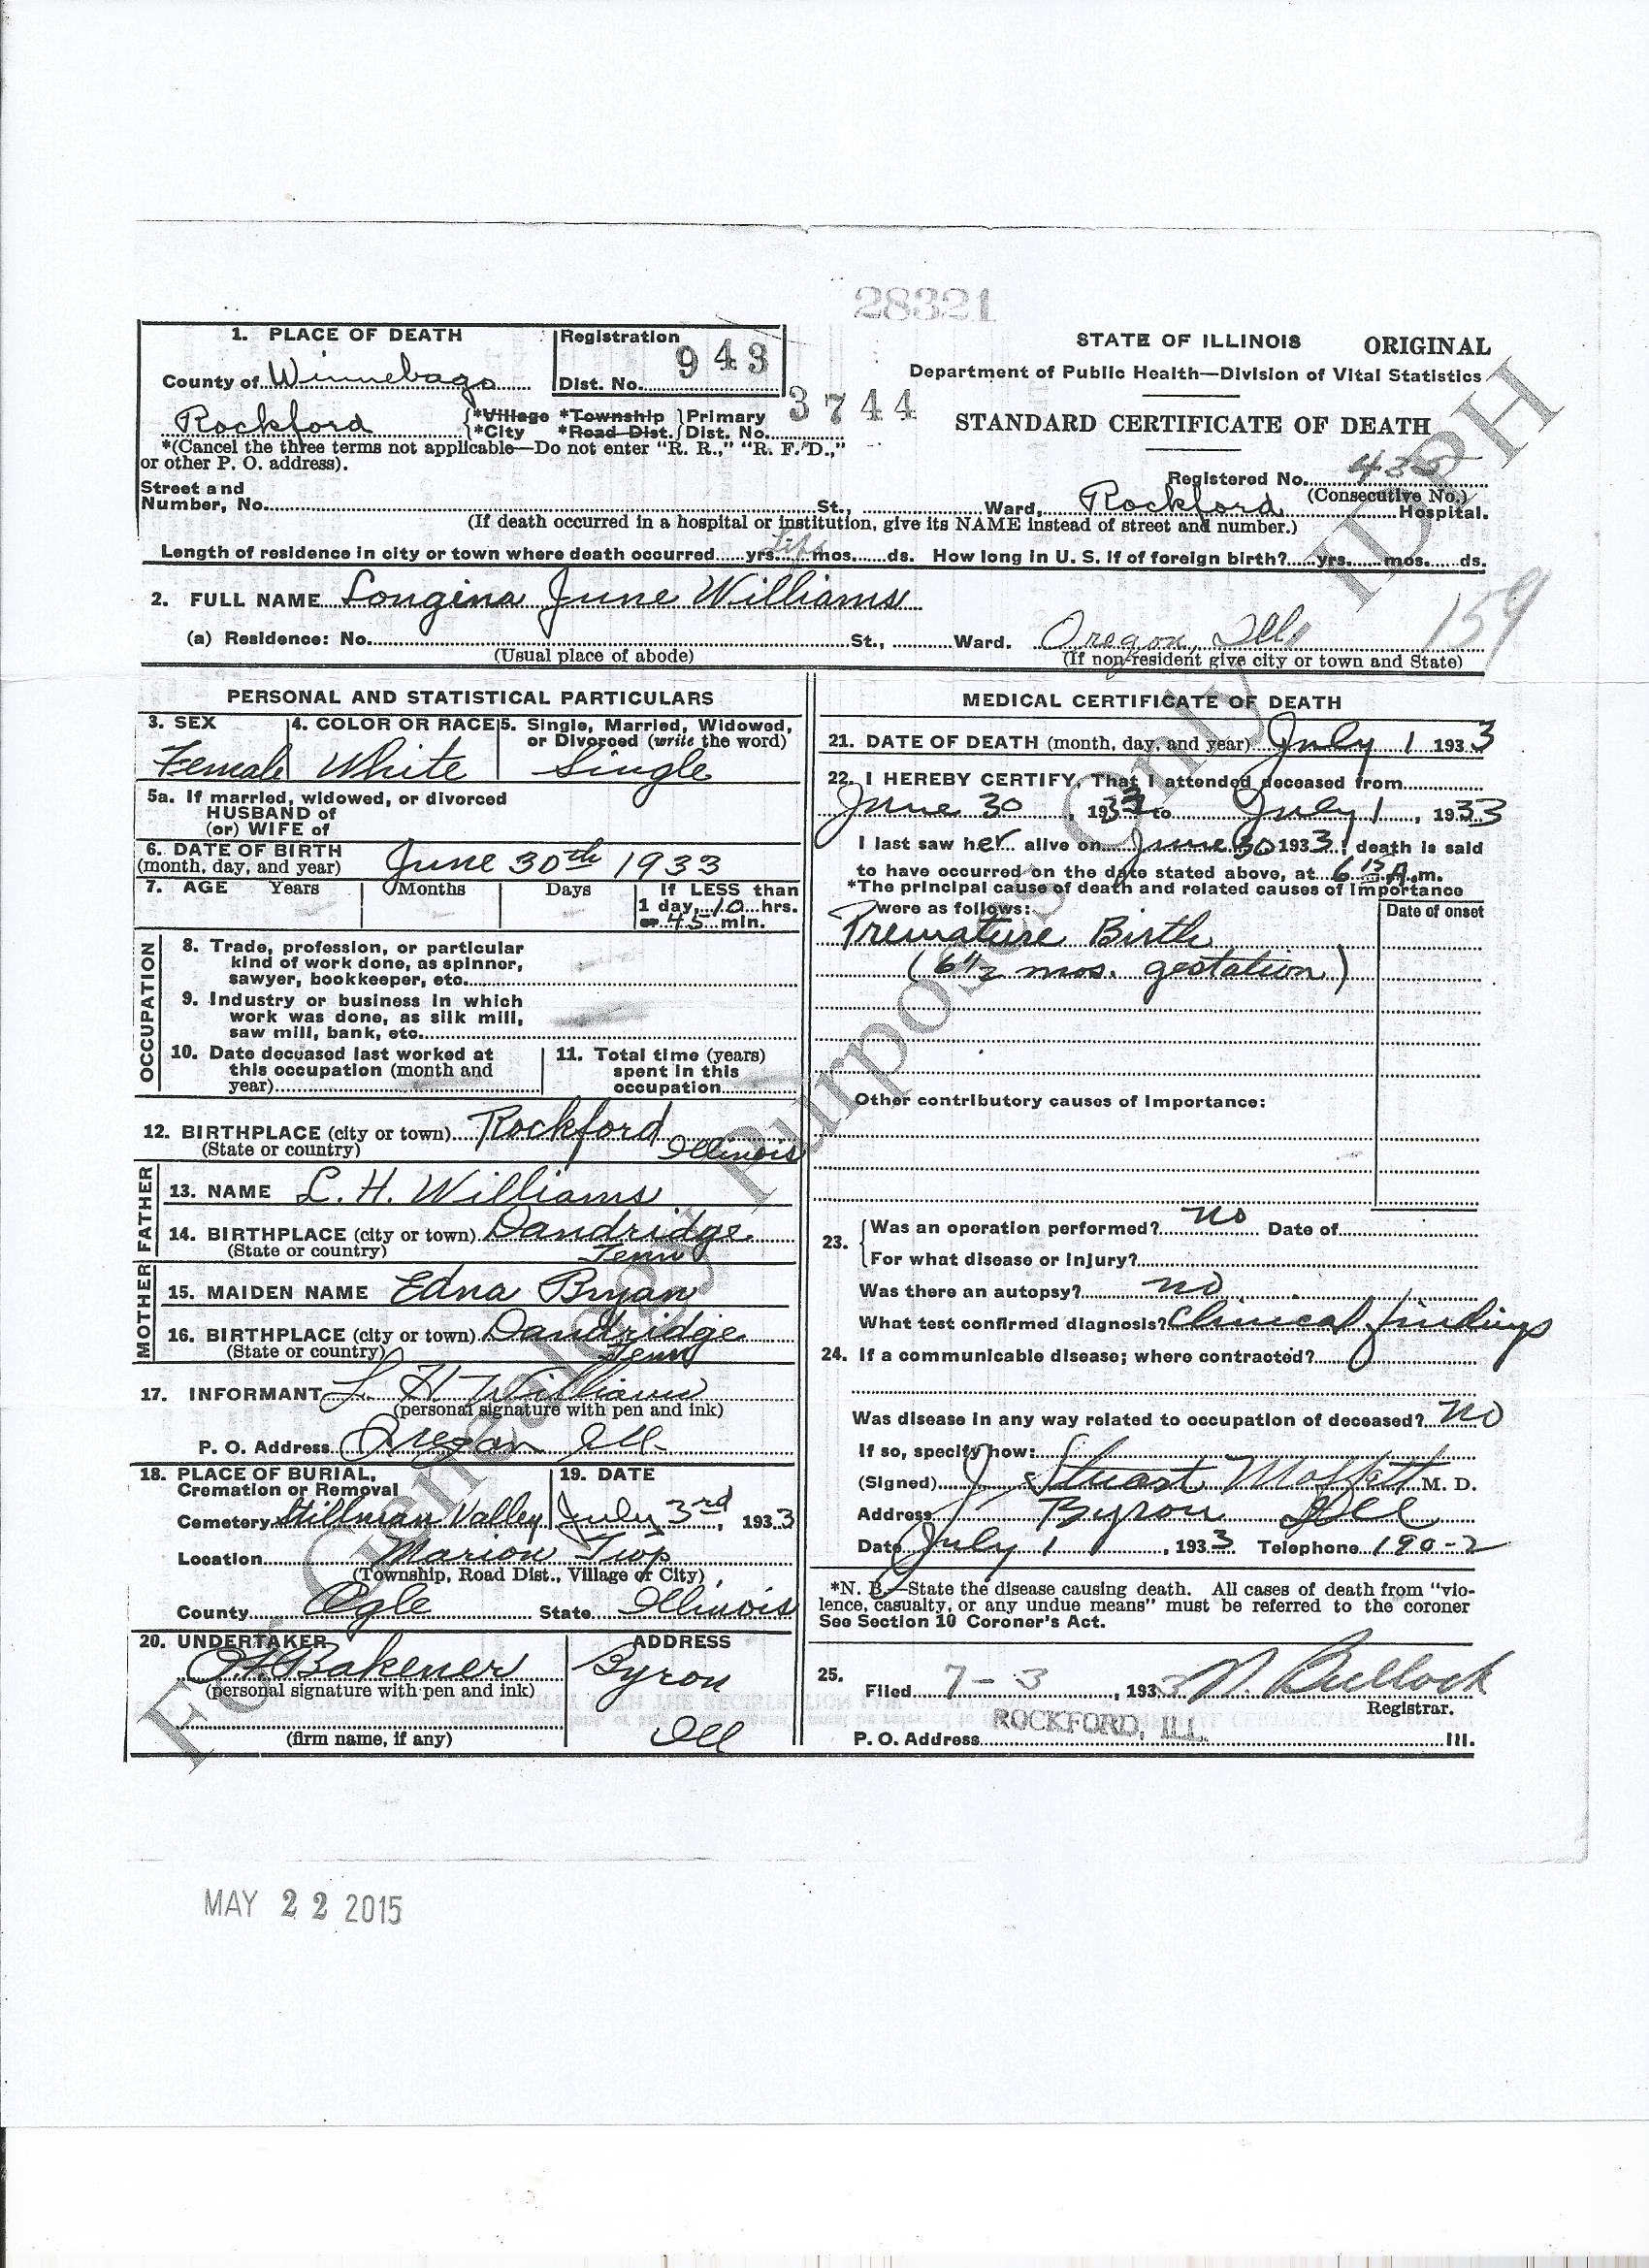 28321
1. PLACE OF DEATH
County of Winnebago
Registration
Dist. No. 943
STATE OF ILLINOIS ORIGINAL
Department of Public Health—Division of Vital Statistics
STANDARD CERTIFICATE OF DEATH
Rockford {*Village *Township } Primary 3744
*City *Road Dist. Dist. No.
*(Cancel the three terms not applicable—Do not enter "R. R.," "R. F. D.,"
or other P. O. address).
Registered No. 435
(Consecutive No.)
Street and
Number, No. St., Ward, Rockford Hospital.
(If death occurred in a hospital or institution, give its NAME instead of street and number.)
Length of residence in city or town where death occurred yrs. Life mos. ds. How long in U. S. if of foreign birth? yrs. mos. ds.
2. FULL NAME Longina June Williams
159
(a) Residence: No. St., Ward. Oregon, Ills
(Usual place of abode) (If non-resident give city or town and State)
PERSONAL AND STATISTICAL PARTICULARS
3. SEX 4. COLOR OR RACE 5. Single, Married, Widowed,
or Divorced (write the word)
Female White Single
5a. If married, widowed, or divorced
HUSBAND of
(or) WIFE of
6. DATE OF BIRTH
(month, day, and year) June 30th 1933
7. AGE Years Months Days If LESS than
1 day, 10 hrs.
or 45 min.
OCCUPATION
8. Trade, profession, or particular
kind of work done, as spinner,
sawyer, bookkeeper, etc.
9. Industry or business in which
work was done, as silk mill,
saw mill, bank, etc.
10. Date deceased last worked at
this occupation (month and
year)
11. Total time (years)
spent in this
occupation
12. BIRTHPLACE (city or town) Rockford
(State or country) Illinois
FATHER
13. NAME L. H. Williams
14. BIRTHPLACE (city or town) Dandridge
(State or country) Tenn
MOTHER
15. MAIDEN NAME Edna Bryan
16. BIRTHPLACE (city or town) Dandridge
(State or country) Tenn
17. INFORMANT L. H Williams
(personal signature with pen and ink)
P. O. Address Oregon Ill.
18. PLACE OF BURIAL, 19. DATE
Cremation or Removal
Cemetery Stillman Valley July 3rd, 1933
Location Marion Twp
(Township, Road Dist., Village or City)
County Ogle State Illinois
20. UNDERTAKER ADDRESS
Bakener Byron
(personal signature with pen and ink)
Ill
(firm name, if any)
MEDICAL CERTIFICATE OF DEATH
21. DATE OF DEATH (month, day, and year) July 1 1933
22. I HEREBY CERTIFY, That I attended deceased from
June 30, 1933 to July 1, 1933
I last saw her alive on June 30 1933; death is said
to have occurred on the date stated above, at 6 15 A.m.
*The principal cause of death and related causes of importance
were as follows: Date of onset
Premature Birth
(6 1/2 mos. gestation)
Other contributory causes of importance:
23. {Was an operation performed? no Date of
For what disease or injury?
Was there an autopsy? no
What test confirmed diagnosis? Clinical findings
24. If a communicable disease; where contracted?
Was disease in any way related to occupation of deceased? no
If so, specify how:
(Signed) J. Stuart Moffatt M. D.
Address Byron Ill
Date July 1, 1933 Telephone 190-2
*N. B.—State the disease causing death. All cases of death from "vio-
lence, casualty, or any undue means" must be referred to the coroner
See Section 10 Coroner's Act.
25.
Filed 7-3, 1933 N. Bullock
Registrar.
P. O. Address ROCKFORD, ILL. Ill.
For Genealogy Purposes Only IDPH
MAY 22 2015